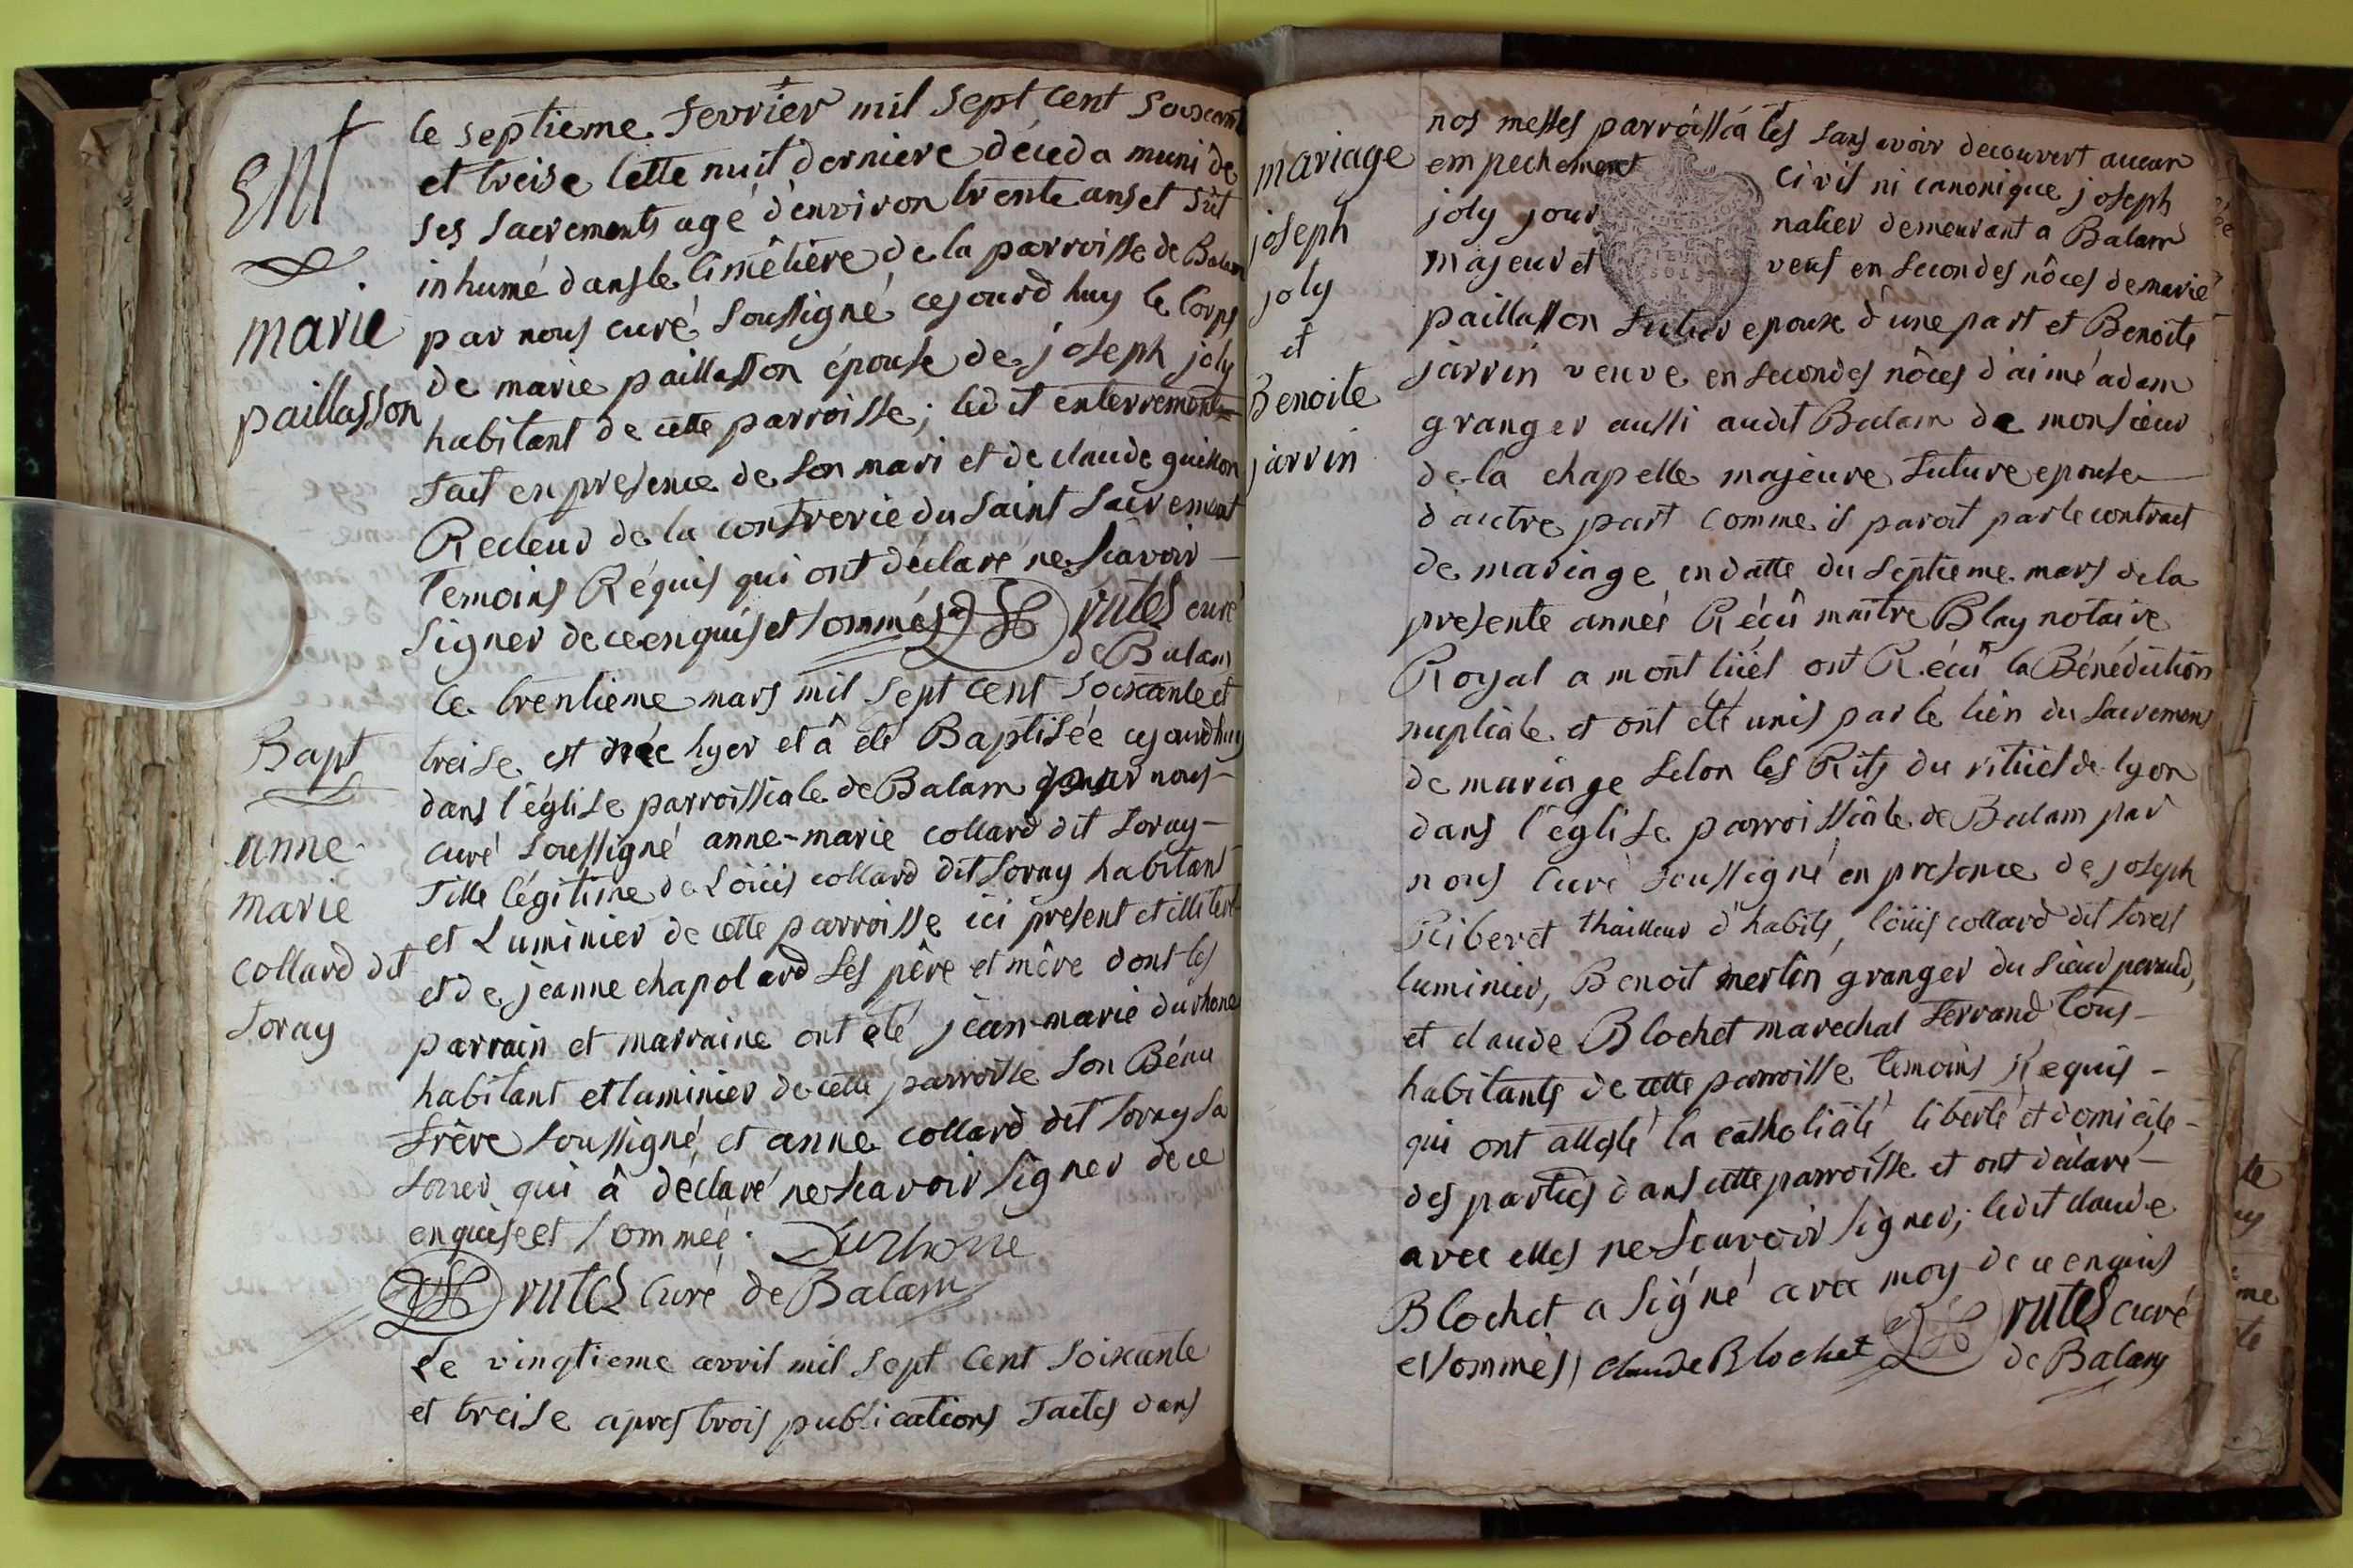 Ent
marie
paillasson
le septieme fevrier mil sept cent soixante
et treise cette nuit derniere déceda muni de
ses sacrements agé d'environ trente ans et fut
inhumé dans le cimêtière de la parroisse de Balam
par nous curé soussigné cejourd huy le corps
de marie paillasson épouse de joseph joly
habitant de cette parroisse; ledit enterrement
fait en presence de son mari et de claude guillon
Recteur de la confrerie du saint sacrement
temoins Réquis qui ont déclaré ne scavoir
signer de ce enquis et sommés rutes curé
de Balam
Bapt
anne
marie
collard dit
foray
le trentieme mars mil sept cent soixante et
treise est née hyer et â été Baptisée cejourdhuy
dans l'église parroissiale de Balam par nous
curé soussigné anne-marie collard dit foray
fille légitime de Loüis collard dit foray habitant
et Luminier de cette parroisse ici present et illiteré
et de jeanne chapolard ses pêre et mêre dont les
parrain et marraine ont été jean-marie durhone
habitant et luminier de cette parroisse son Béau
frère soussigné, et anne collard dit foray sa
soeur qui â déclaré ne scavoir signer de ce
enquise et sommeé. Durhone
rutes Curé de Balam
Le vingtieme avril mil sept cent soixante
et treise apres trois publications faites dans
mariage
joseph
joly
et
Benoite
jarrin
nos messes parroissiales sans avoir decouvert aucun
empechement civil ni canonique joseph
joly journalier demeurant a Balam
majeur et veuf en secondes nôces de marie
paillasson futur epoux d'une part et Benoite
jarrin veuve en secondes nôces d'aimé adam
granger aussi audit Balam de monsieur
de la chapelle majeure future epouse
d'autre part comme il paroit par le contract
de mariage en datte du septieme mars de la
presente année Récû maître Blay notaire
Royal a montlüel ont Récû la Bénédiction
nuptiale et ont été unis par le lien du sacrement
de mariage selon les Rits du ritüel de lyon
dans l'église parroissiale de Balam par
nous Curé soussigné en presence de joseph
Riberet thailleur d'habits, loüis collard dit forest
luminier, Benoit merlin granger du sieur perraud,
et claude Blochet marechal ferrand tous
habitants de cette parroisse temoins Requis
qui ont attesté la catholicité, liberté et domicile
des parties dans cette parroisse et ont déclaré
avec elles ne scavoir signer; ledit claude
Blochet a signé avec moy de ce enquis
et sommés claude Blochet rutes curé
de Balam